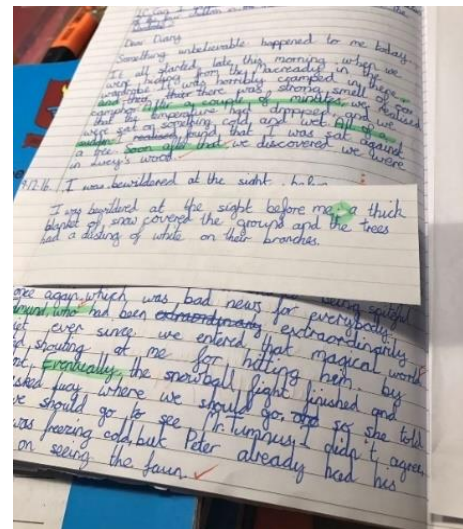 Dear Diary
Something unbelievable happened to me today.
It all started late this morning when we
were hiding from the in the
wardrobe. It was horribly cramped in there
and there was strong smell of
camphor. After a couple of minutes, we realised
the temperature had dropped and we
were sat on something cold and wet. All of a
sudden I realised found that I was sat against
a tree. Soon after that we discovered we were
in Lucy's wood.
9.12.16 I was bewildered at the sight
I was bewildered at the sight before me; a thick
blanket of snow covered the ground and the trees
had a dusting of white on their branches.
once again, which was bad news for everybody.
who had been extraordinary extraordinarily
ever since we entered that magical world
shouting at me for hitting him. by
Eventually, the snowball fight finished and
Lucy where we should go, so she told
we should go to see Mr. Tumnus. I didn't agree,
was freezing cold, but Peter already had his
on seeing the faun.